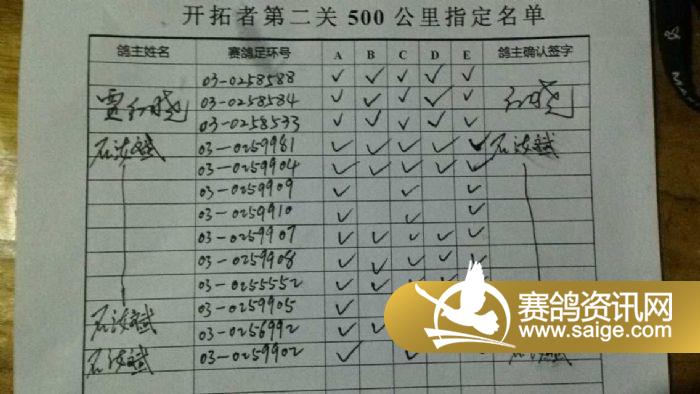 开拓者第二关 500 公里指定名单
鸽主姓名 赛鸽足环号 A B C D E 鸽主确认签字
03-0258588 ✓ ✓ ✓ ✓ ✓
03-0258584 ✓ ✓ ✓ ✓ ✓
03-0258533 ✓ ✓ ✓ ✓ ✓
03-0259981 ✓ ✓ ✓ ✓ ✓
03-0259904 ✓ ✓ ✓ ✓ ✓
03-0259909 ✓ ✓ ✓
03-0259910 ✓ ✓ ✓
03-0259907 ✓ ✓ ✓ ✓ ✓
03-0259908 ✓ ✓ ✓ ✓ ✓
03-0255552 ✓ ✓ ✓ ✓ ✓
03-0259905 ✓
03-0256992 ✓ ✓
03-0259902 ✓ ✓
赛鸽资讯网
www.saige.com